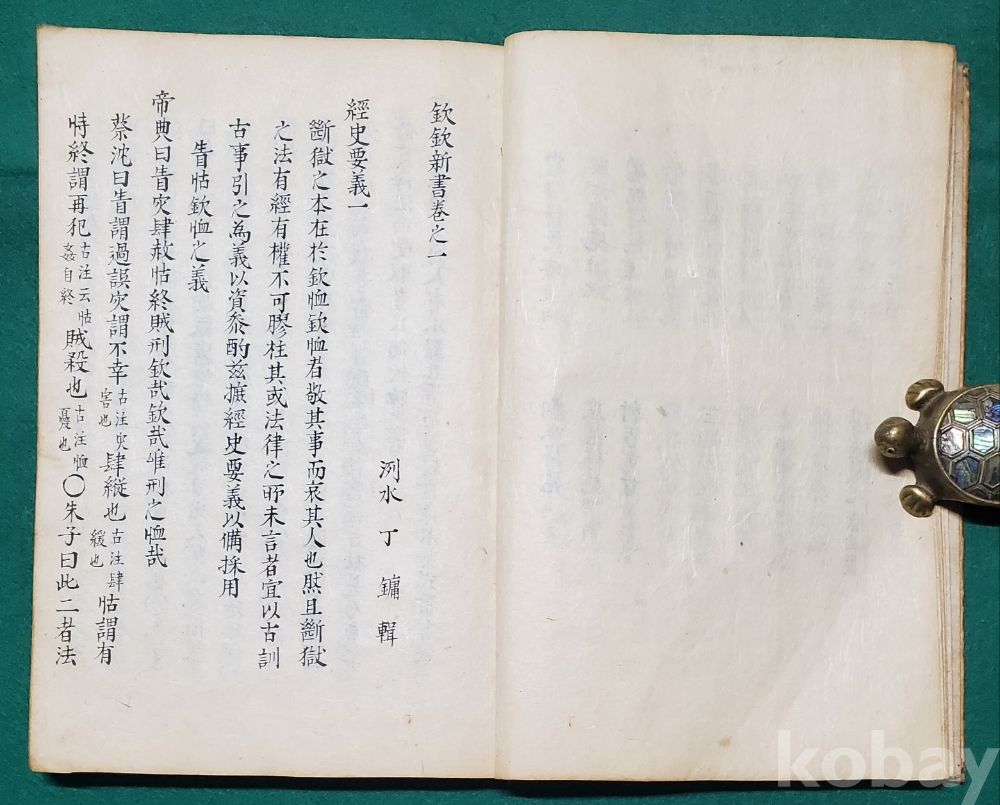 欽欽新書卷之一
洌水 丁 鏞 輯
經史要義一
斷獄之本在於欽恤欽恤者敬其事而哀其人也然且斷獄
之法有經有權不可膠柱其或法律之所未言者宜以古訓
古事引之為義以資叅酌玆摭經史要義以備採用
眚怙欽恤之義
帝典曰眚灾肆赦怙終賊刑欽哉欽哉惟刑之恤哉
蔡沈曰眚謂過誤灾謂不幸古注灾害也肆縱也古注肆緩也怙謂有
恃終謂再犯古注云怙姦自終賊殺也古注恤憂也〇朱子曰此二者法
kobay